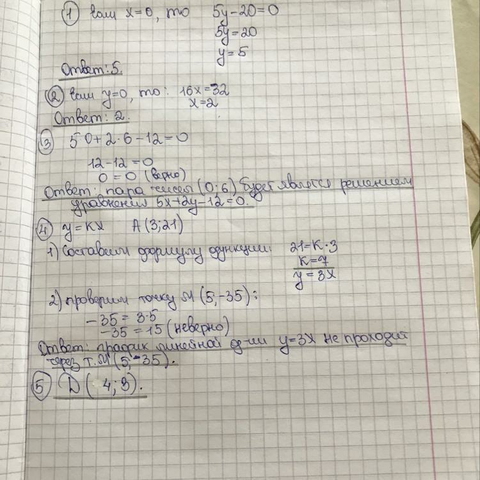 ① Если x=0, то 5y-20=0
5y=20
y=5
Ответ: 5.
② Если y=0, то: 16x=32
x=2
Ответ: 2.
③ 5·0+2·6-12=0
12-12=0
0=0 (верно)
Ответ: пара чисел (0;6) будет являться решением
уравнения 5x+2y-12=0.
④ y=kx A(3;21)
1) Составим формулу функции: 21=k·3
k=7
y=3x
2) проверим точку M(5;-35):
-35=3·5
-35=15 (неверно)
Ответ: график линейной ф-ии y=3x не проходит
через т. M(5;-35).
⑤ D(4;9).